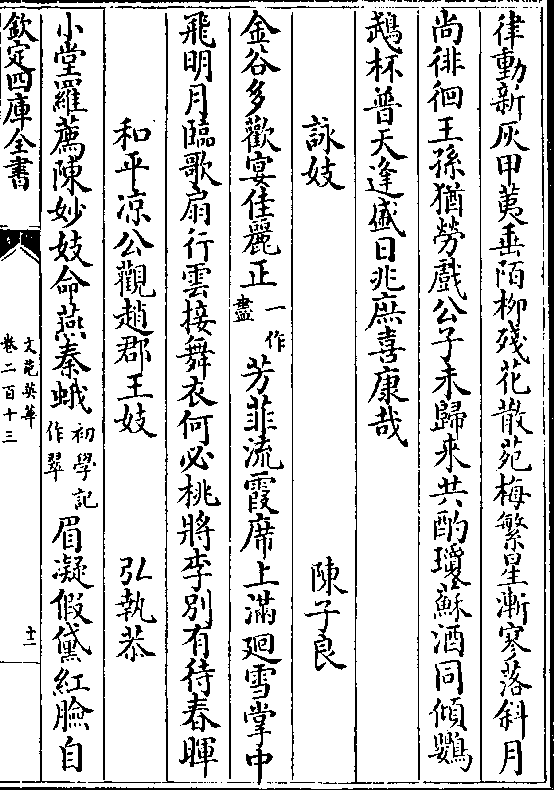 律動新灰甲荑垂陌柳殘花散苑梅繁星漸寒落斜月
尚徘徊王孫猶勞戲公子未歸來共酌瓊蘇酒同傾鸚
鵡杯普天逢盛日兆庶喜康哉
詠妓 陳子良
金谷多歡宴佳麗正一作盡芳菲流霞席上滿廻雪掌中
飛明月臨歌扇行雲接舞衣何必桃將李別有待春暉
和平凉公觀趙郡王妓 弘執恭
小堂羅薦陳妙妓命燕秦蛾初學記作翠眉凝假黛紅臉自
欽定四庫全書
文苑英華
卷二百十三
十二